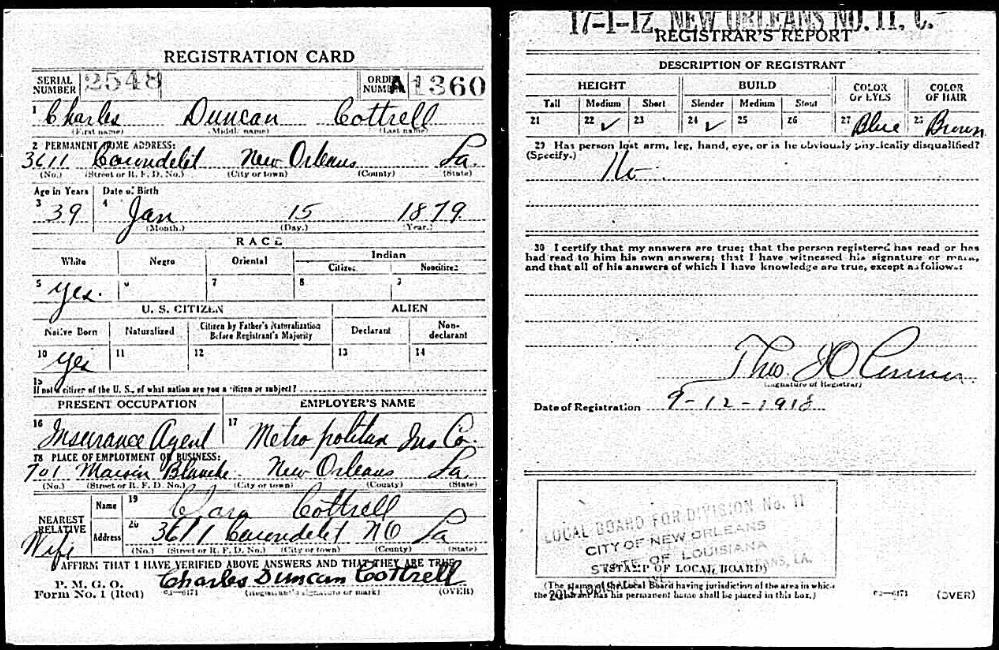 REGISTRATION CARD
SERIAL NUMBER 2548 ORDER NUMBER A1360
1 Charles Duncan Cottrell
(First name) (Middle name) (Last name)
2 PERMANENT HOME ADDRESS:
3611 Carondelet New Orleans La.
(No.) (Street or R. F. D. No.) (City or town) (County) (State)
Age in Years Date of Birth
3 39 4 Jan 15 1879
(Month.) (Day.) (Year.)
RACE
White Negro Oriental Indian
Citizen Noncitizen
5 yes. 6 7 8 9
U. S. CITIZEN ALIEN
Native Born Naturalized Citizen by Father's Naturalization Before Registrant's Majority Declarant Non-declarant
10 yes 11 12 13 14
15
If not a citizen of the U. S., of what nation are you a citizen or subject?
PRESENT OCCUPATION EMPLOYER'S NAME
16 Insurance Agent 17 Metropolitan Ins Co.
18 PLACE OF EMPLOYMENT OR BUSINESS:
701 Maison Blanche New Orleans La.
(No.) (Street or R. F. D. No.) (City or town) (County) (State)
NEAREST RELATIVE Name 19 Clara Cottrell
Wife Address 20 3611 Carondelet NO La
(No.) (Street or R. F. D. No.) (City or town) (County) (State)
I AFFIRM THAT I HAVE VERIFIED ABOVE ANSWERS AND THAT THEY ARE TRUE
P. M. G. O.
Form No. 1 (Red) 03—6171 Charles Duncan Cottrell
(Registrant's signature or mark) (OVER)
17-1-17 NEW ORLEANS NO. 11. C.
REGISTRAR'S REPORT
DESCRIPTION OF REGISTRANT
HEIGHT BUILD COLOR OF EYES COLOR OF HAIR
Tall Medium Short Slender Medium Stout
21 22 ✓ 23 24 ✓ 25 26 27 Blue 28 Brown
29 Has person lost arm, leg, hand, eye, or is he obviously physically disqualified?
(Specify.) No
30 I certify that my answers are true; that the person registered has read or has
had read to him his own answers; that I have witnessed his signature or mark,
and that all of his answers of which I have knowledge are true, except as follows:
Theo
(Signature of Registrar)
Date of Registration 9-12-1918
LOCAL BOARD FOR DIVISION No. 11
CITY OF NEW ORLEANS
STATE OF LOUISIANA
(STAMP OF LOCAL BOARD)
(The stamp of the Local Board having jurisdiction of the area in which
the registrant has his permanent home shall be placed in this box.)
03—6171 (OVER)